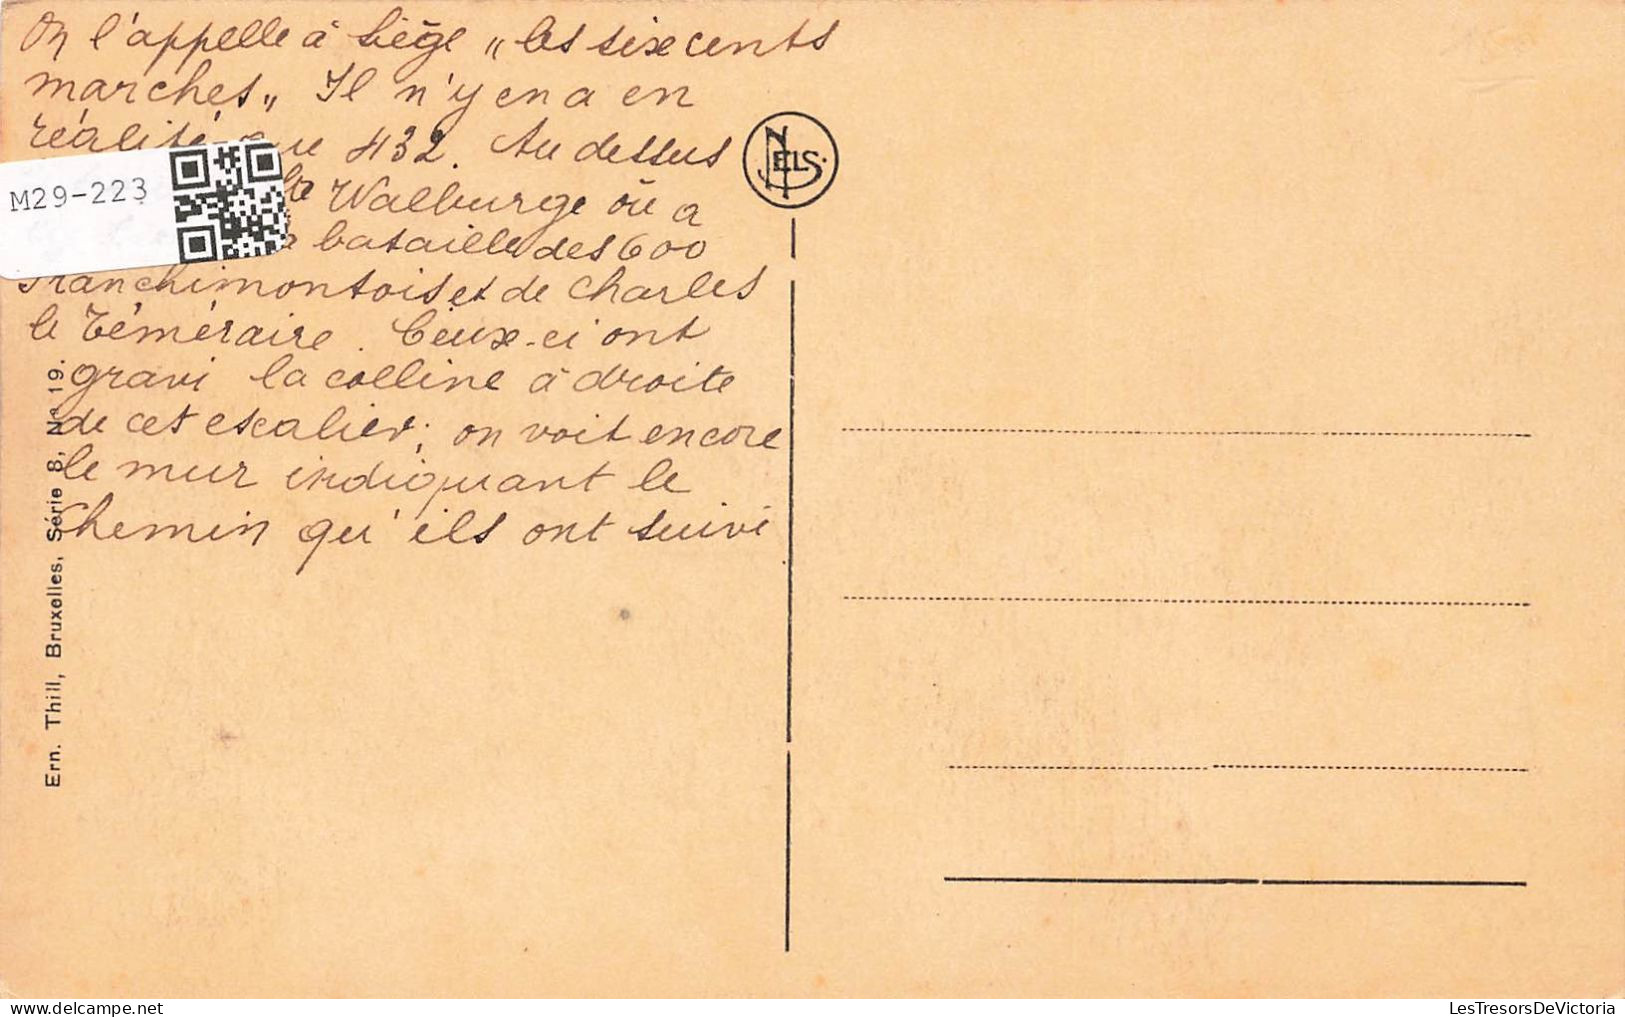 On l'appelle à Liège „les six cents
marches„ Il n'y en a en
réalité que 432. Au dessus
Ste Walburge où a
la bataille des 600
Franchimontois et de Charles
le Téméraire. Ceux-ci ont
gravi la colline à droite
de cet escalier; on voit encore
le mur indiquant le
chemin qu'ils ont suivi
M29-223
NELS
Ern. Thill, Bruxelles, Série 8, No 19.
LesTresorsDeVictoria